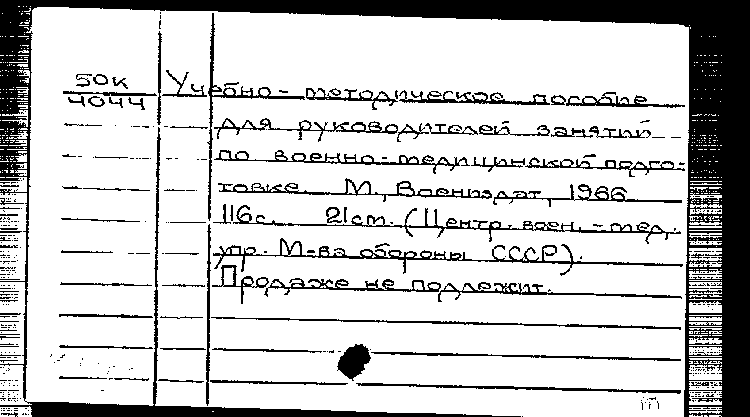 50К Учебно-методическое пособие
4044
для руководителей занятий
по военно-медицинской подго-
товке. М., Воениздат, 1966
116с. 21см. (Центр. воен.-мед.
упр. М-ва обороны СССР).
Продаже не подлежит.